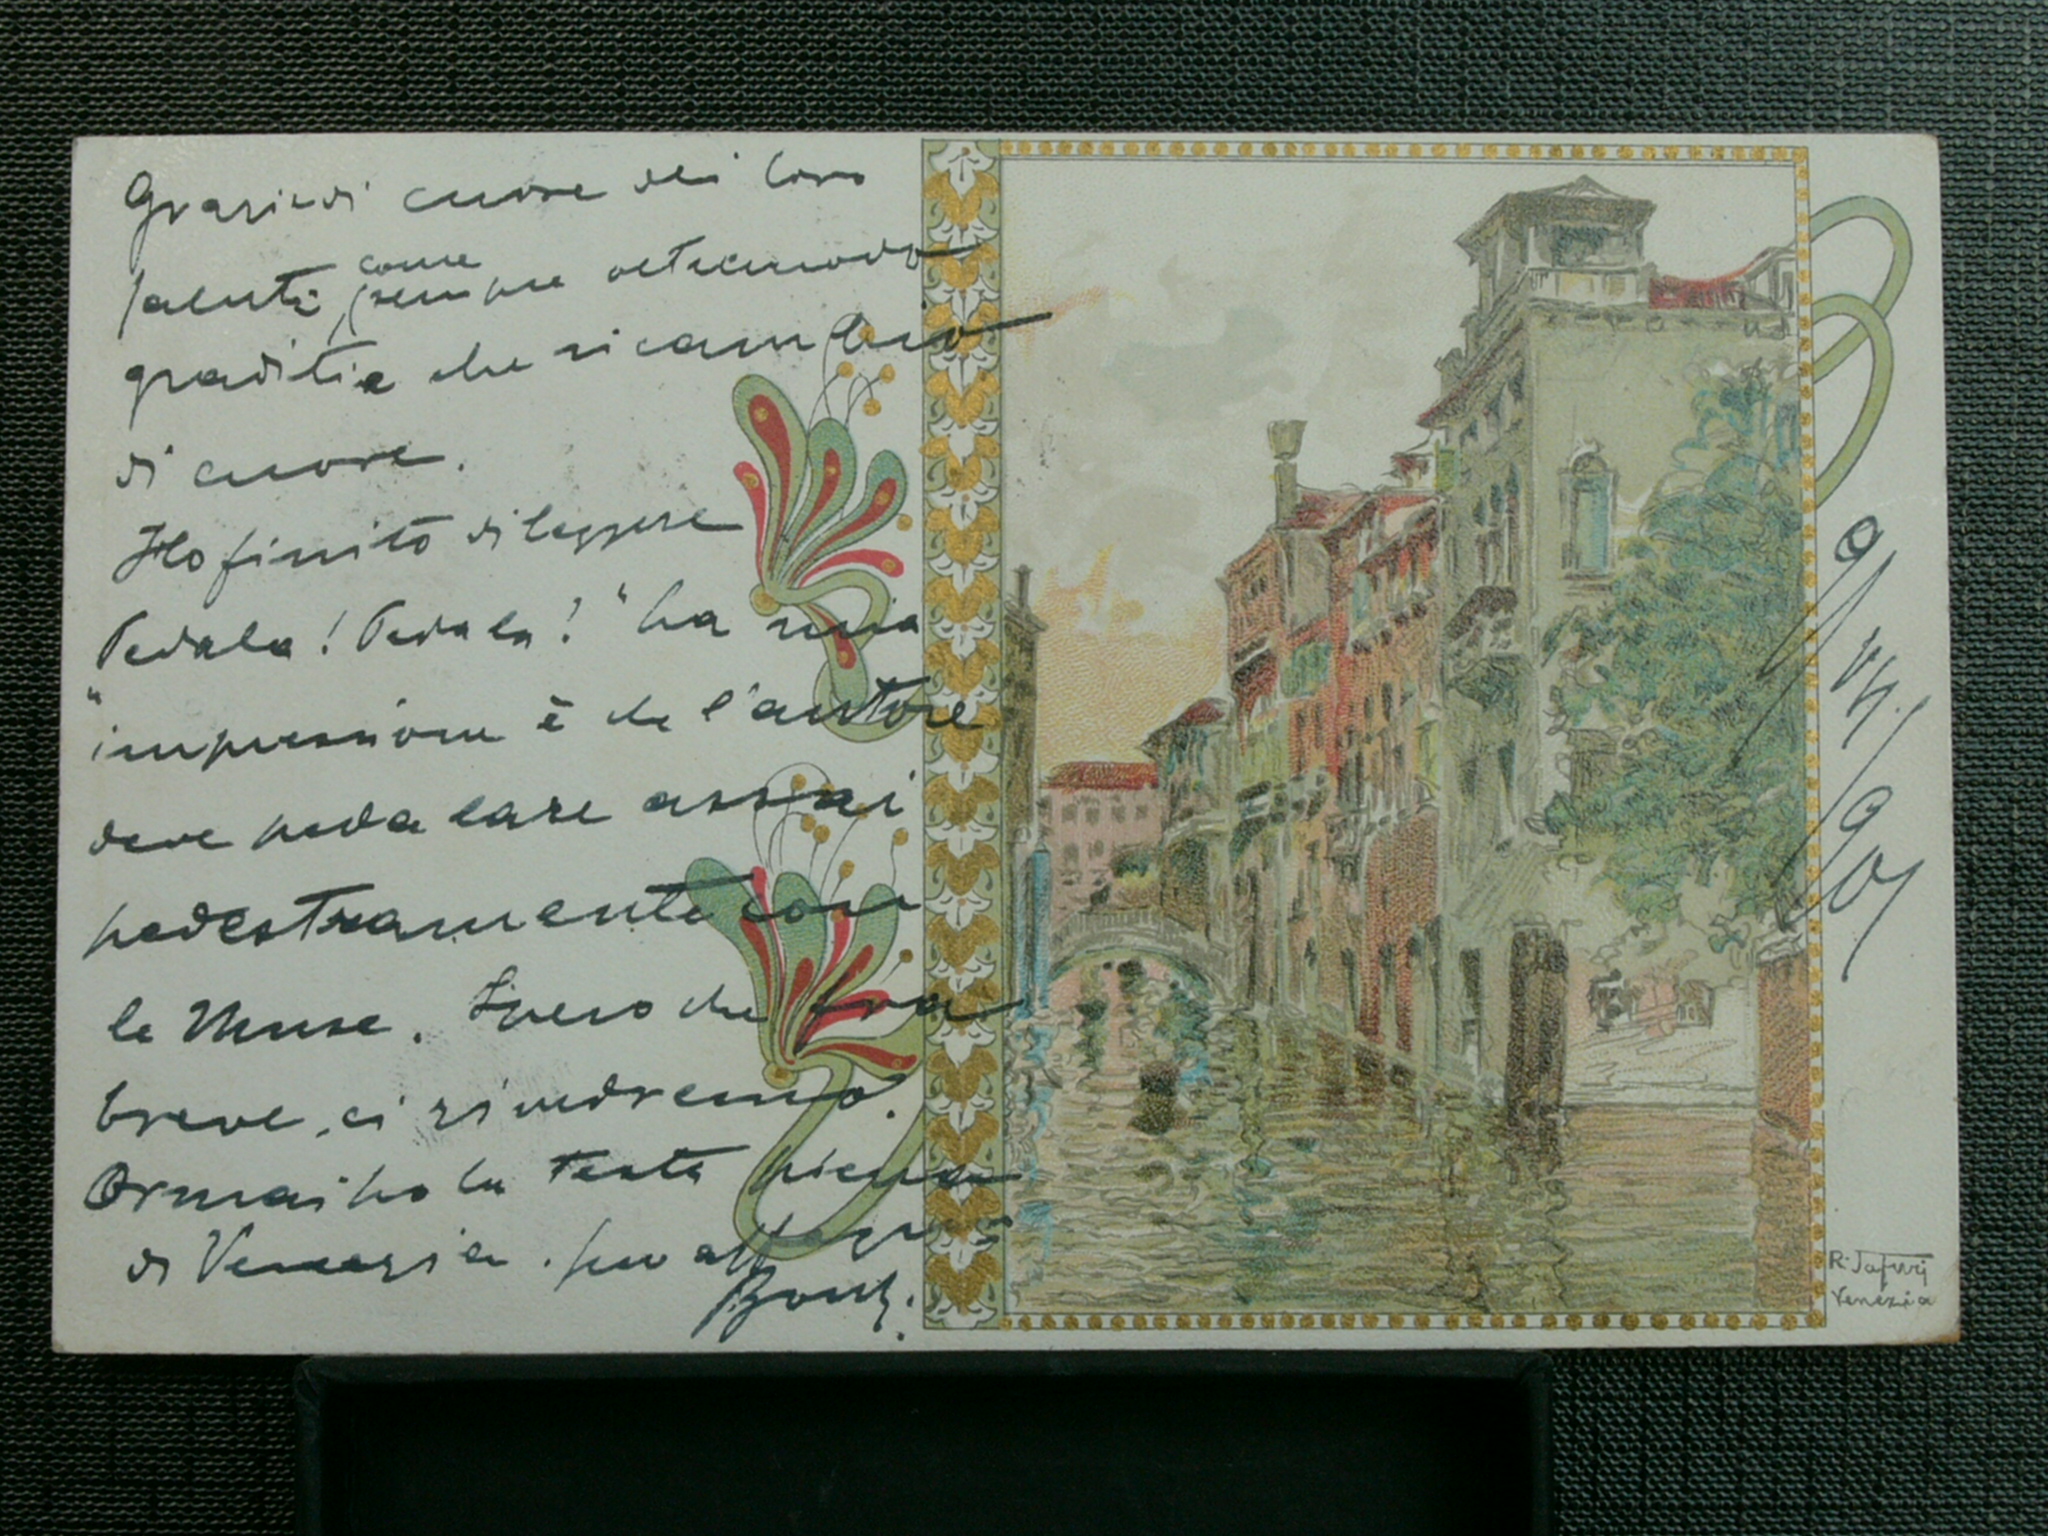 Grazie di cuore dei loro
saluti, come sempre oltremodo
graditi e che ricambio
di cuore.
Ho finito di leggere
"Pedala! Pedala!" La mia
impressione è che l'autore
deve pedalare assai
pedestramente con
le Muse. Spero che fra
breve, ci rivedremo.
Ormai ho la testa piena
di Venezia. suo aff
R. Tafuri
Venezia